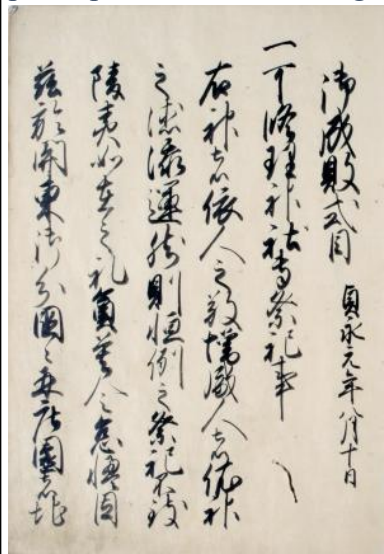 御成敗式目 貞永元年八月十日
一可修理神社専祭祀事
右神者依人之敬増威人者依神
之徳添運然則恒例之祭祀不致
陵夷如在之礼奠莫令怠慢因
茲於關東御分國々并庄園者地